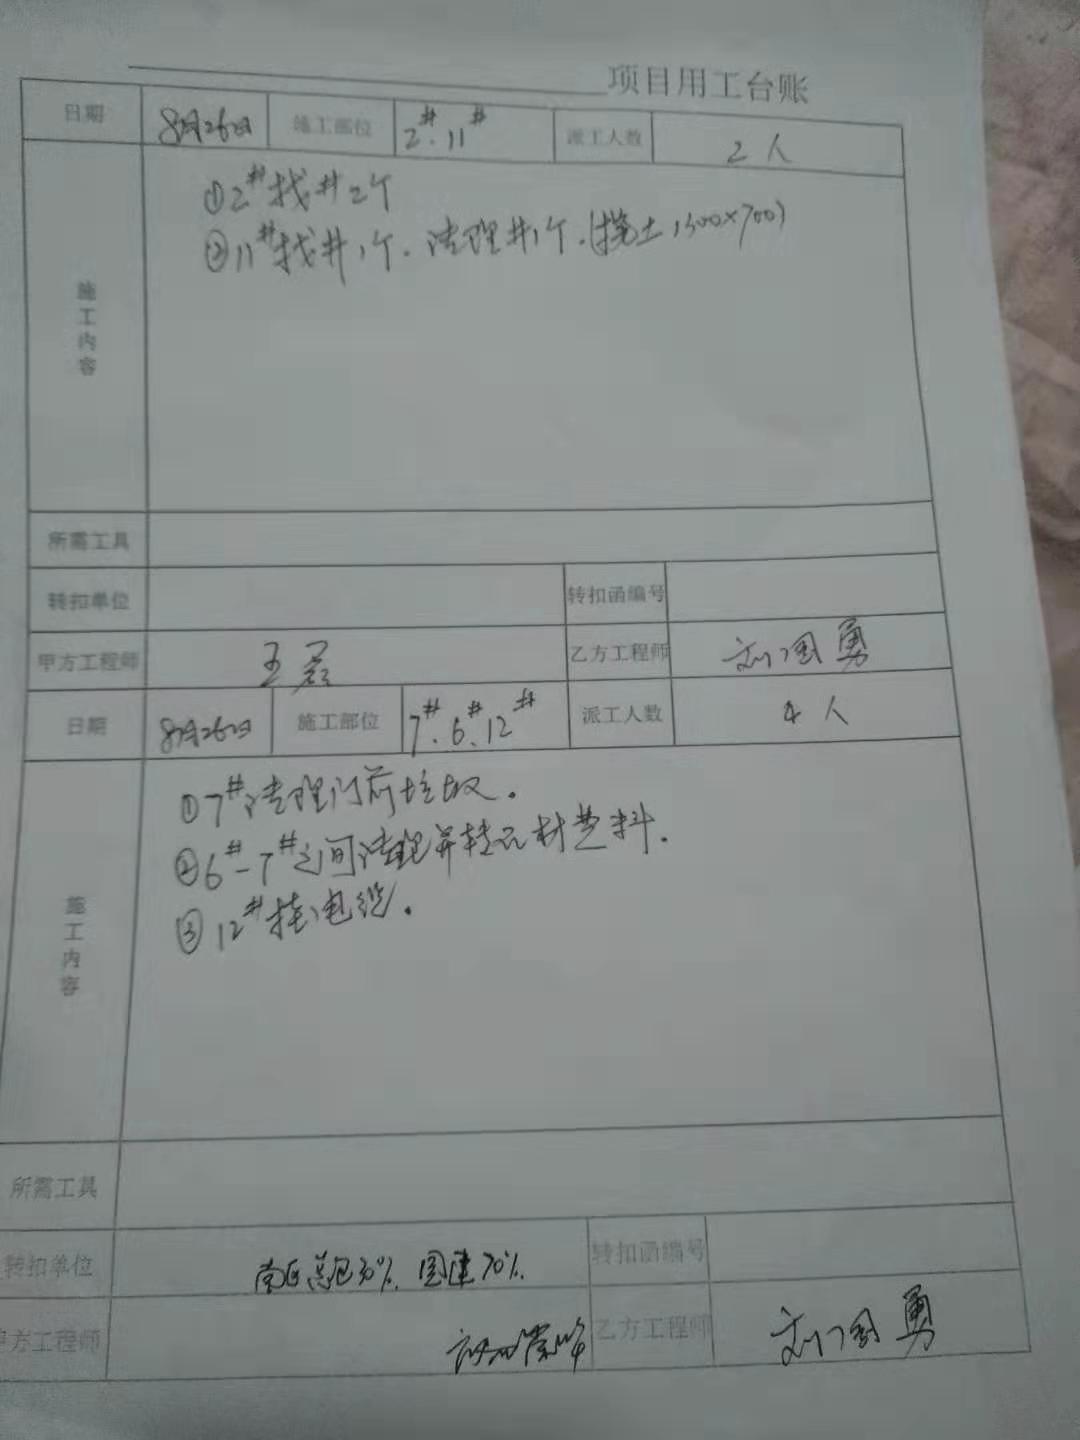 项目用工台账
日期 8月26日 施工部位 2#.11# 派工人数 2人
施工内容
①2#找井2个
②11#找井1个.清理井1个.(挖土1300×700)
所需工具
转扣单位 转扣函编号
甲方工程师 王磊 乙方工程师 刘国勇
日期 8月26日 施工部位 7#.6#.12# 派工人数 4人
施工内容
①7#清理门前垃圾.
②6#-7#之间清理并转石材垫料.
③12#挂电缆.
所需工具
转扣单位 南区总包30%.国建70%. 转扣函编号
甲方工程师 乙方工程师 刘国勇